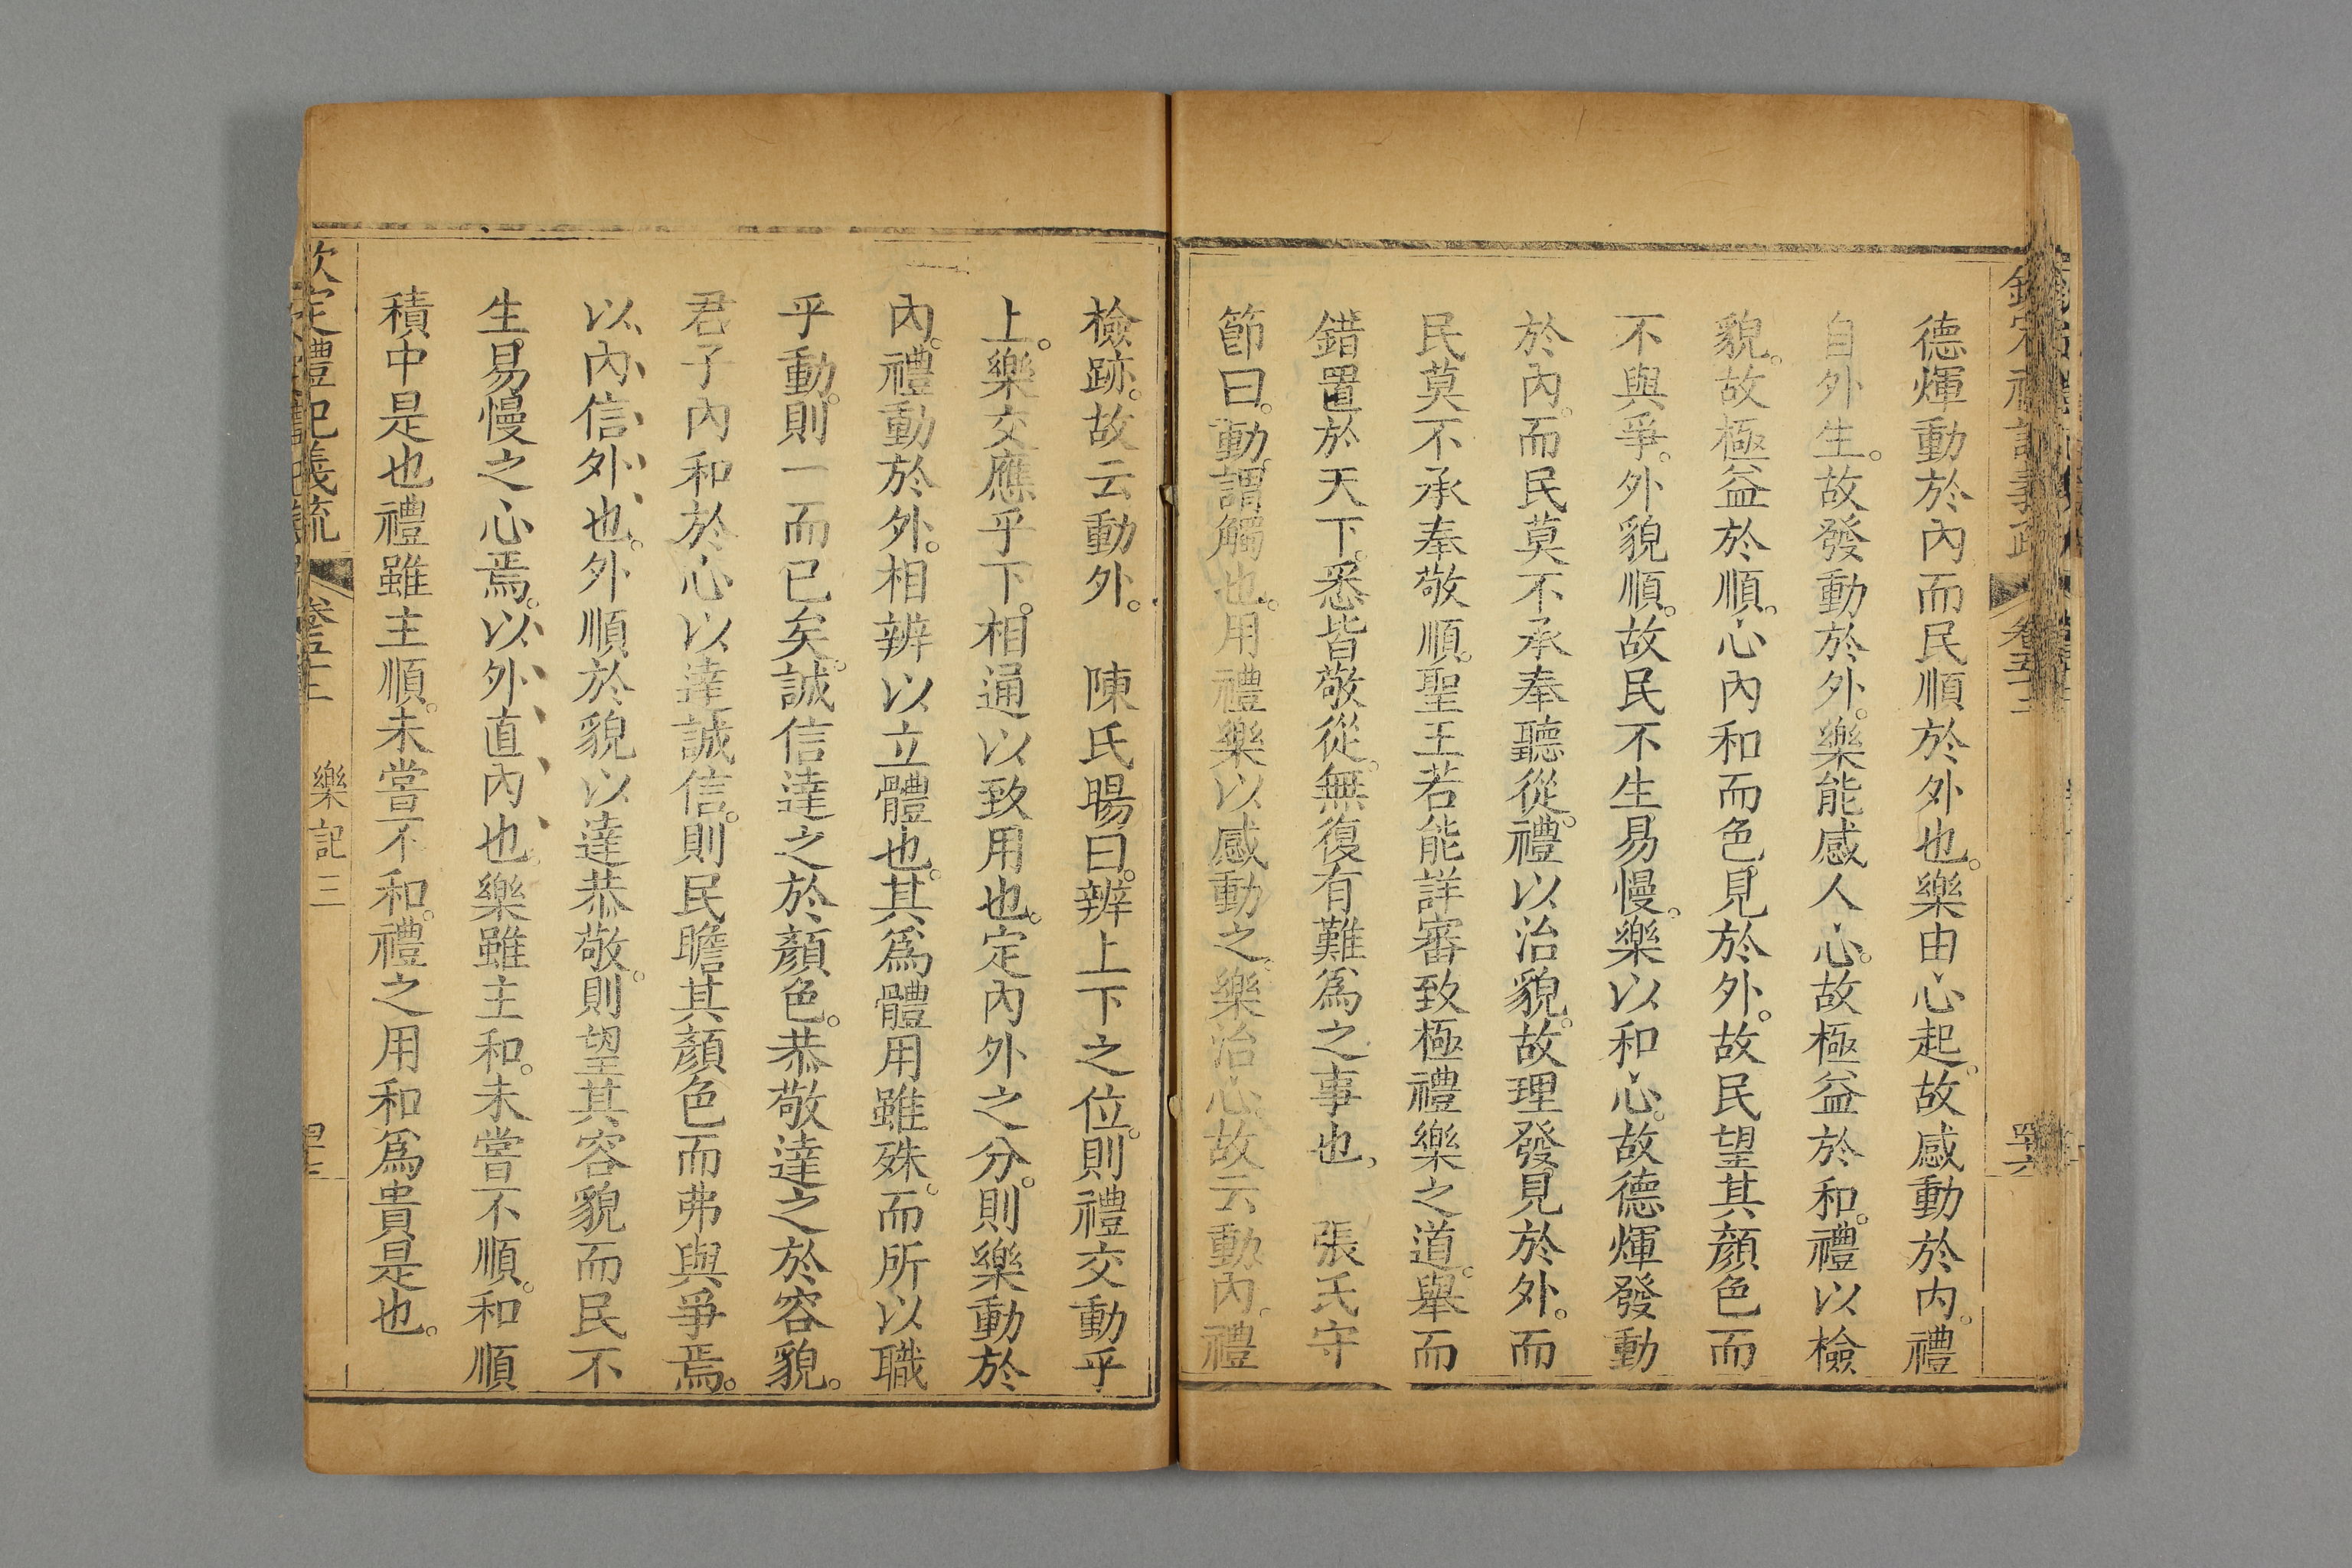 德煇動於內而民順於外也。樂由心起。故感動於內。禮
自外生。故發動於外。樂能感人心。故極益於和。禮以檢
貌。故極益於順。心內和而色見於外。故民望其顏色而
不與爭。外貌順。故民不生易慢。樂以和心。故德煇發動
於內。而民莫不承奉聽從。禮以治貌。故理發見於外。而
民莫不承奉敬順。聖王若能詳審致極禮樂之道。舉而
錯置於天下。悉皆敬從。無復有難爲之事也。 張氏守
節曰。動謂觸也。用禮樂以感動之。樂治心。故云動內。禮
檢跡。故云動外。 陳氏暘曰。辨上下之位。則禮交動乎
上。樂交應乎下。相通以致用也。定內外之分。則樂動於
內。禮動於外。相辨以立體也。其爲體用雖殊。而所以職
乎動。則一而已矣。誠信達之於顏色。恭敬達之於容貌。
君子內和於心以達誠信。則民瞻其顏色而弗與爭焉。
以內信外也。外順於貌以達恭敬。則望其容貌而民不
生易慢之心焉。以外直內也。樂雖主和。未嘗不順。和順
積中是也禮雖主順。未嘗不和。禮之用和爲貴是也。
欽定禮記義疏 卷五十二 樂記三